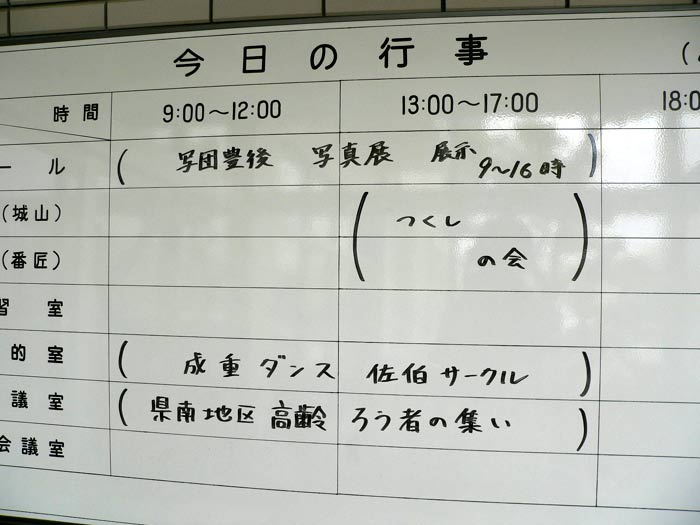 今日の行事
時間 9:00〜12:00 13:00〜17:00 18:0
ール (写団豊後 写真展 展示 9〜16時)
(城山) (つくし
(番匠) の会)
習室
的室 (成重ダンス 佐伯サークル)
議室 (県南地区高齢ろう者の集い)
会議室